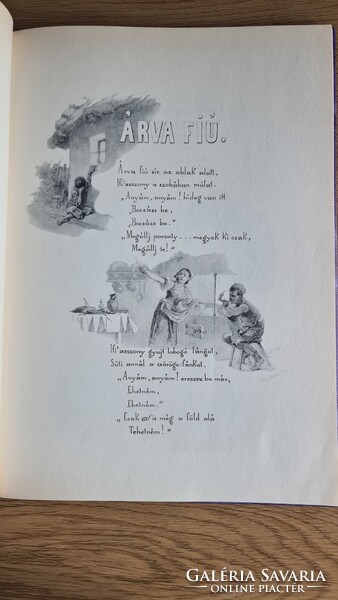 ÁRVA FIÚ.
Árva fiú sir az ablak alatt,
Ifi asszony a szobában mulat.
„Anyám, anyám! hideg van itt
„Bocsáss be,
„Bocsáss be.“
„Megállj poronty... megyek ki csak,
Megállj te!“
Ifi asszony gyujt lobogó lángot,
Süti annál a csöröge-fánkot,
„Anyám, anyám! eressz be már,
Ehetném,
Ehetném.“
„Csak is még a föld alá
Tehetném!“
GALÉRIA SAVARIA
ONLINE PIACTÉR